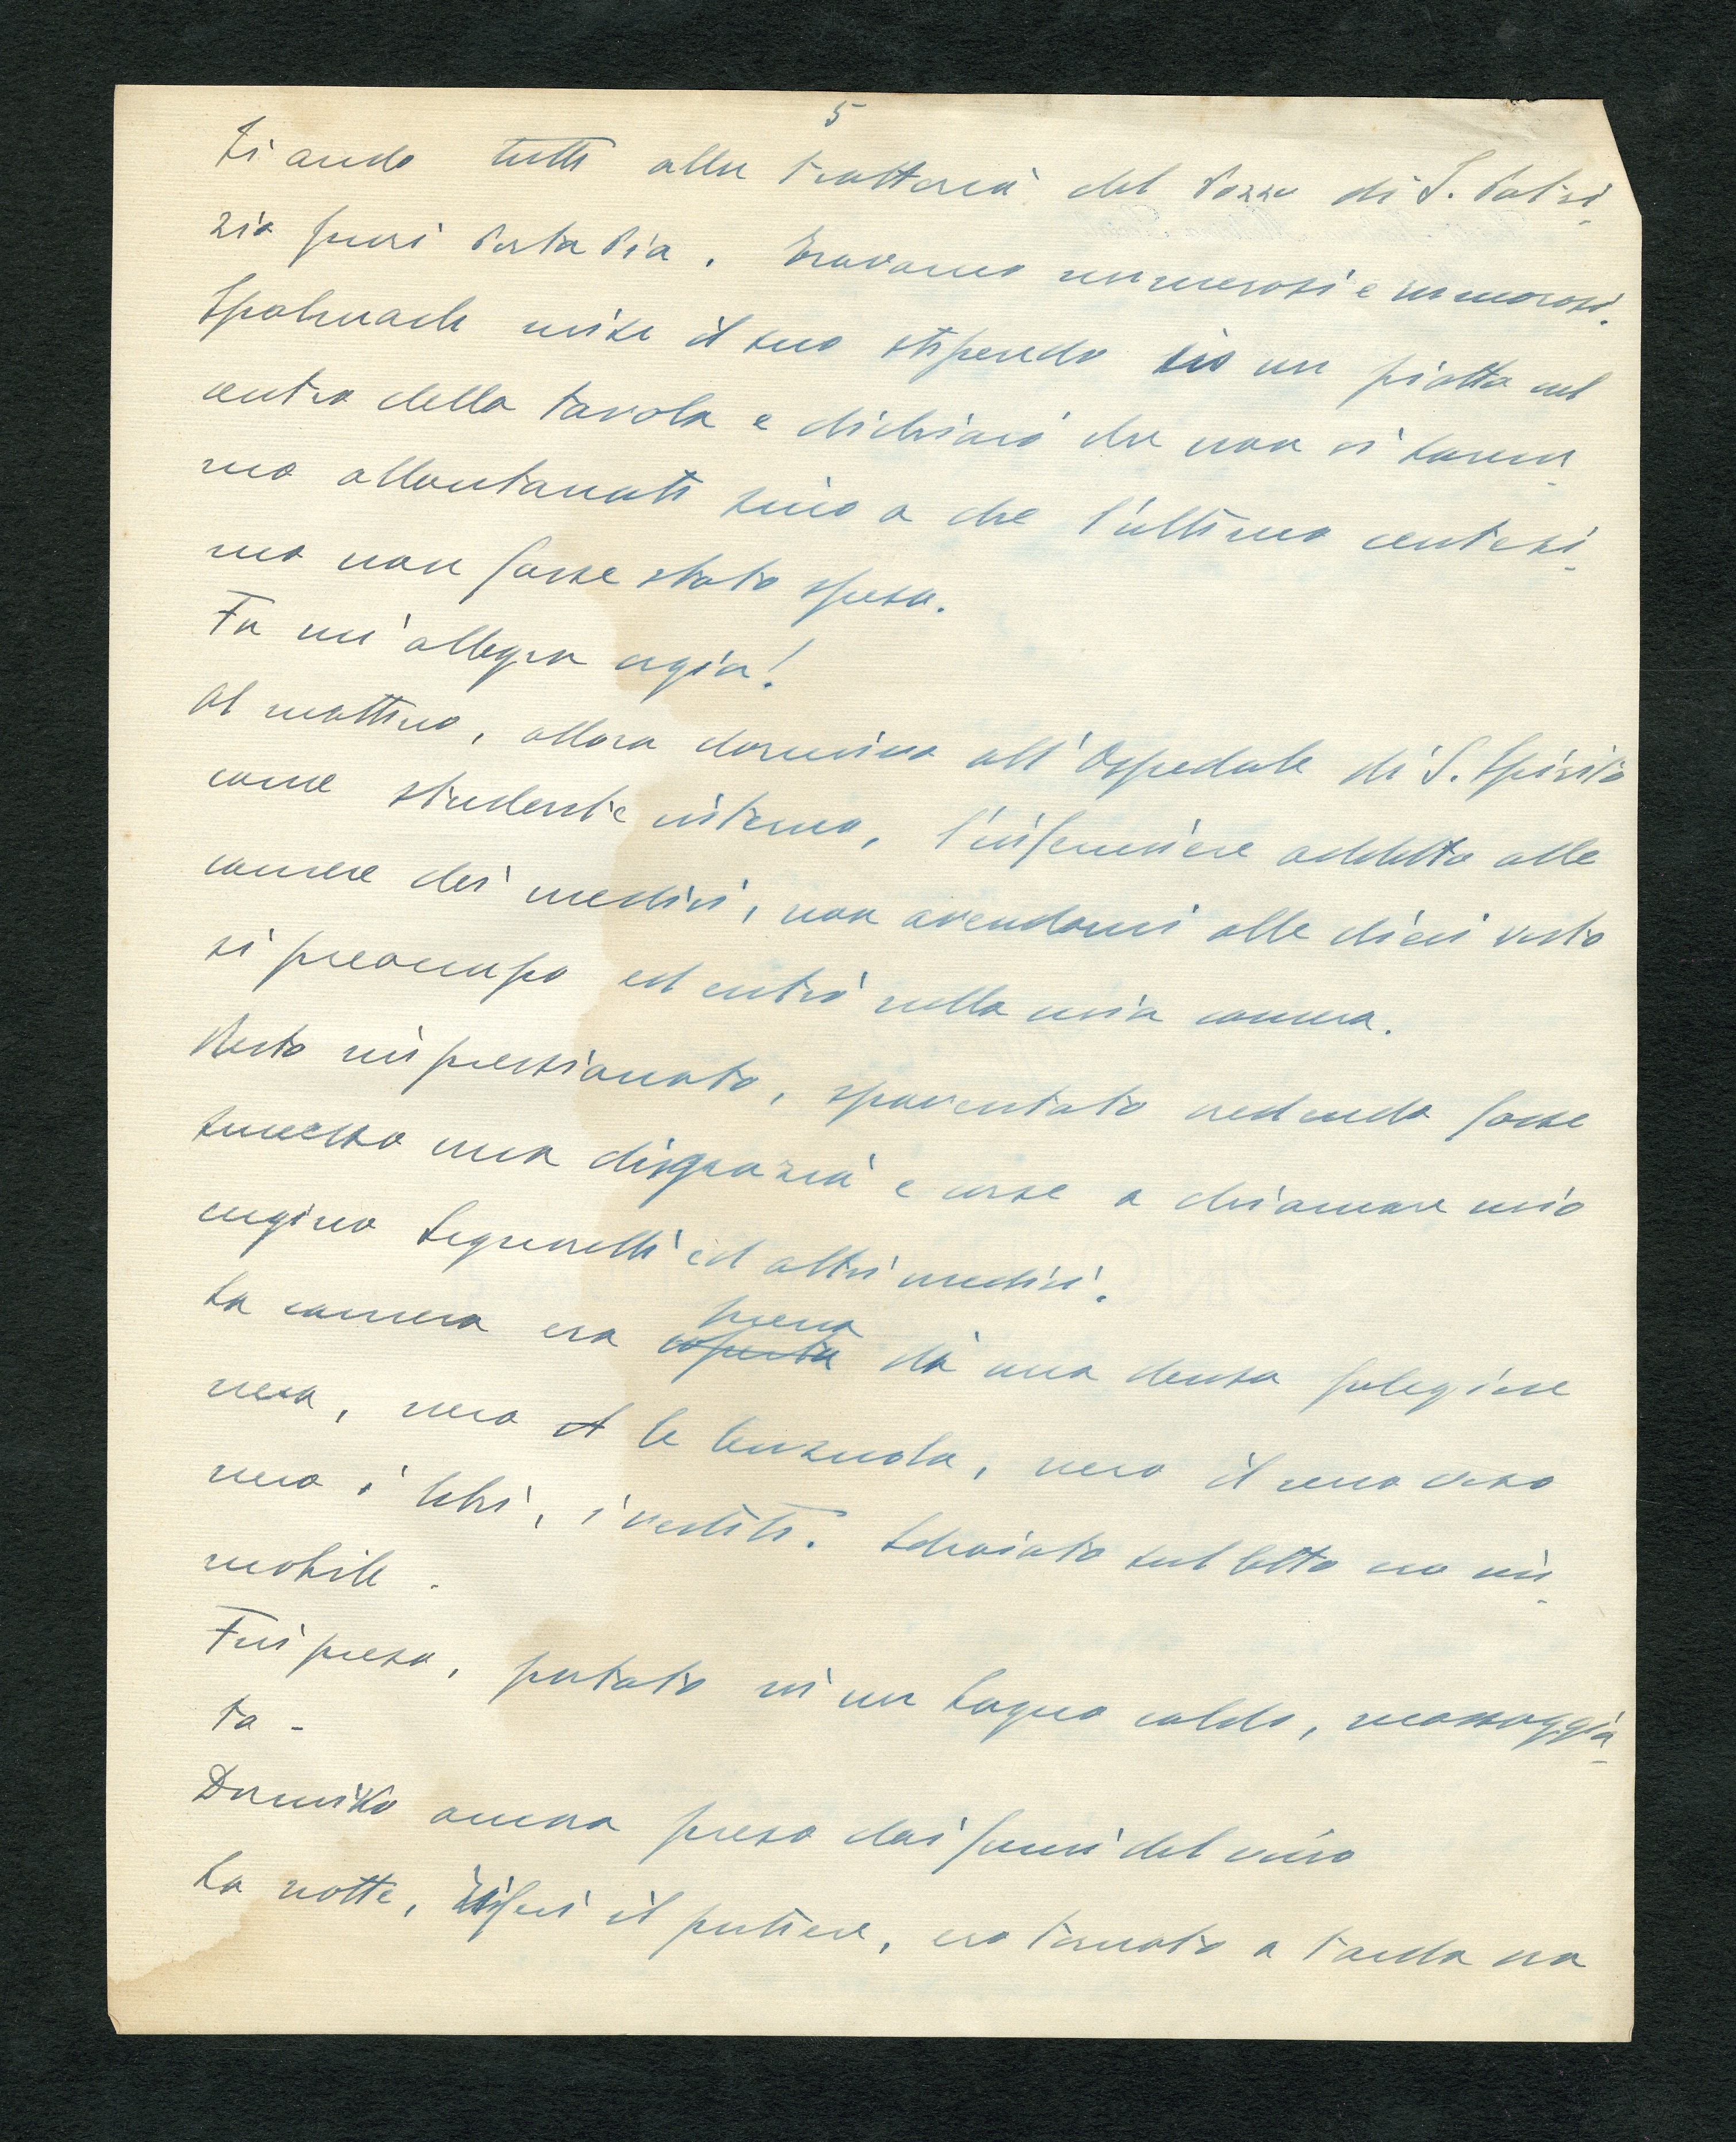 5
Si andò tutti alla trattoria del Pozzo di S. Patri-
zio fuori Porta Pia. Eravamo numerosi e rumorosi.
mise il suo stipendio in un piatto nel
centro della tavola e dichiarò che non ci sarem-
mo allontanati sino a che l'ultimo centesi-
mo non fosse stato speso.
Fu un'allegra orgia!
Al mattino, allora dormivo all'Ospedale di S. Spirito
come studente interno, l'infermiere addetto alle
camere dei medici, non avendomi alle dieci visto
si preoccupò ed entrò nella mia camera.
Restò impressionato, spaventato credendo fosse
successa una disgrazia e corse a chiamare mio
cugino ed altri medici.
La camera era coperta piena di una densa fuliggine
nera, nero le lenzuola, nero il mio viso
nero i libri, i vestiti. Sdraiato sul letto ero im-
mobile.
Fui preso, portato in un bagno caldo, massaggia-
to -
Dormivo ancora preso dai fumi del vino
La notte, il portiere, ero tornato a tarda ora